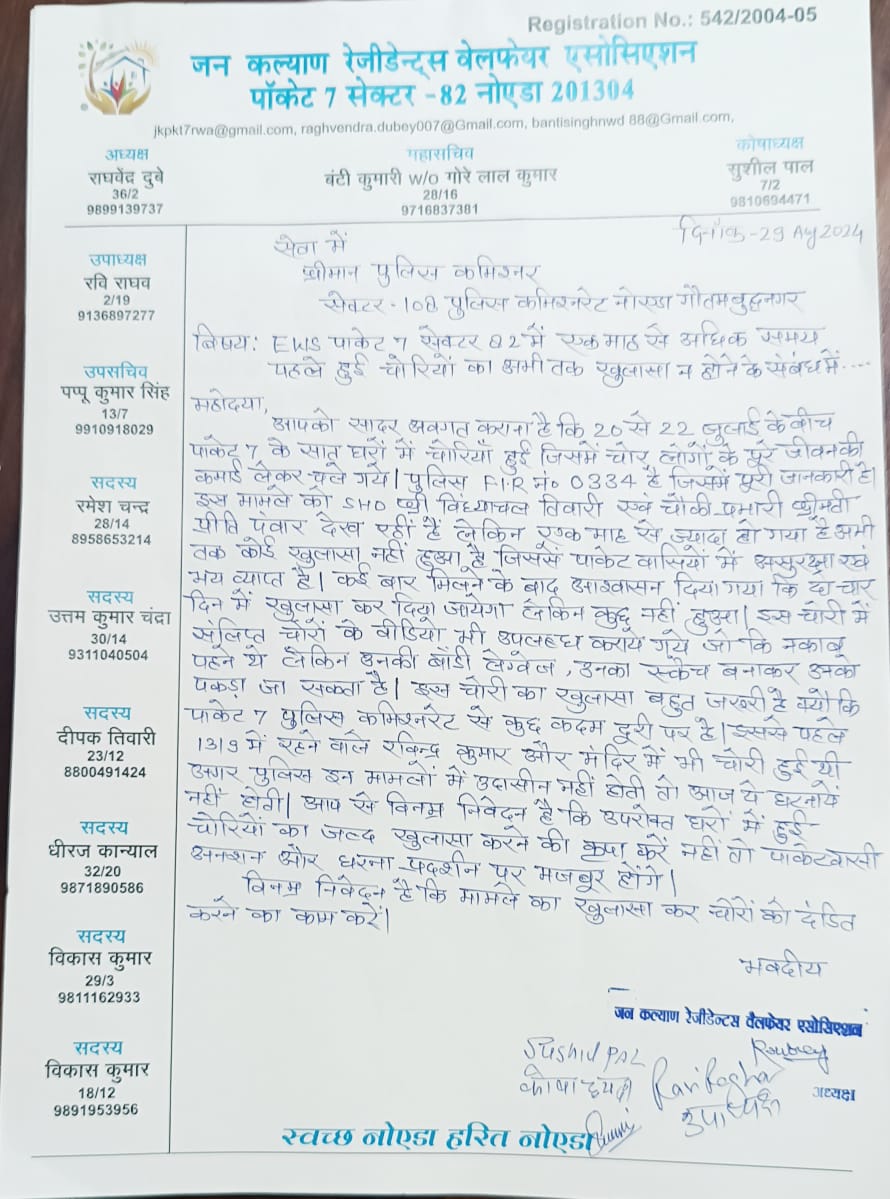 Registration No.: 542/2004-05
जन कल्याण रेजीडेन्ट्स वेलफेयर एसोसिएशन
पॉकेट 7 सेक्टर -82 नोएडा 201304
jkpkt7rwa@gmail.com, raghvendra.dubey007@Gmail.com, bantisinghnwd 88@Gmail.com,
अध्यक्ष
राघवेंद्र दुबे
36/2
9899139737
महासचिव
बंटी कुमारी w/o गोरे लाल कुमार
28/16
9716837381
कोषाध्यक्ष
सुशील पाल
7/2
9810694471
उपाध्यक्ष
रवि राघव
2/19
9136897277
उपसचिव
पप्पू कुमार सिंह
13/7
9910918029
सदस्य
रमेश चन्द्र
28/14
8958653214
सदस्य
उत्तम कुमार चंद्रा
30/14
9311040504
सदस्य
दीपक तिवारी
23/12
8800491424
सदस्य
धीरज कान्याल
32/20
9871890586
सदस्य
विकास कुमार
29/3
9811162933
सदस्य
विकास कुमार
18/12
9891953956
दिनाँक-29 Aug 2024
सेवा में
श्रीमान पुलिस कमिश्नर
सेक्टर-108 पुलिस कमिश्नरेट नोएडा गौतमबुद्धनगर
विषय: EWS पाकेट 7 सेक्टर 82 में एक माह से अधिक समय
पहले हुई चोरियों का अभी तक खुलासा न होने के संबंध में....
महोदया,
आपको सादर अवगत कराना है कि 20 से 22 जुलाई के बीच
पाकेट 7 के सात घरों में चोरियाँ हुई जिसमें चोर लोगों के पूरे जीवन की
कमाई लेकर चले गये। पुलिस F.I.R No 0334 है जिसमें पूरी जानकारी है।
इस मामले को SHO श्री विंध्याचल तिवारी एवं चौकी प्रभारी श्रीमती
प्रीति पंवार देख रहीं है लेकिन एक माह से ज्यादा हो गया है अभी
तक कोई खुलासा नहीं हुआ है जिससे पाकेट वासियों में असुरक्षा एवं
भय व्याप्त है। कई बार मिलने के बाद आश्वासन दिया गया कि दो चार
दिन में खुलासा कर दिया जायेगा लेकिन कुछ नहीं हुआ। इस चोरी में
संलिप्त चोरों के वीडियो भी उपलब्ध कराये गये जो कि नकाब
पहने थे लेकिन उनकी बॉडी लेंग्वेज, उनका स्केच बनाकर उनको
पकड़ा जा सकता है। इस चोरी का खुलासा बहुत जरूरी है क्यो कि
पाकेट 7 पुलिस कमिश्नरेट से कुछ कदम दूरी पर है। इससे पहले
13/9 में रहने वाले रविन्द्र कुमार और मंदिर में भी चोरी हुई थी
अगर पुलिस इन मामलों में उदासीन नहीं होती तो आज ये घटनायें
नहीं होती। आप से विनम्र निवेदन है कि उपरोक्त घरों में हुई
चोरियों का जल्द खुलासा करने की कृपा करें नहीं तो पाकेटवासी
अनशन और धरना प्रदर्शन पर मजबूर होंगे।
विनम्र निवेदन है कि मामले का खुलासा कर चोरों को दंडित
करने का काम करें।
भवदीय
जन कल्याण रेजीडेन्टस वैलफेयर एसोसिएशन
Sushil PAL
कोषाध्यक्ष
Ravi Raghav
उपाध्यक्ष
अध्यक्ष
स्वच्छ नोएडा हरित नोएडा